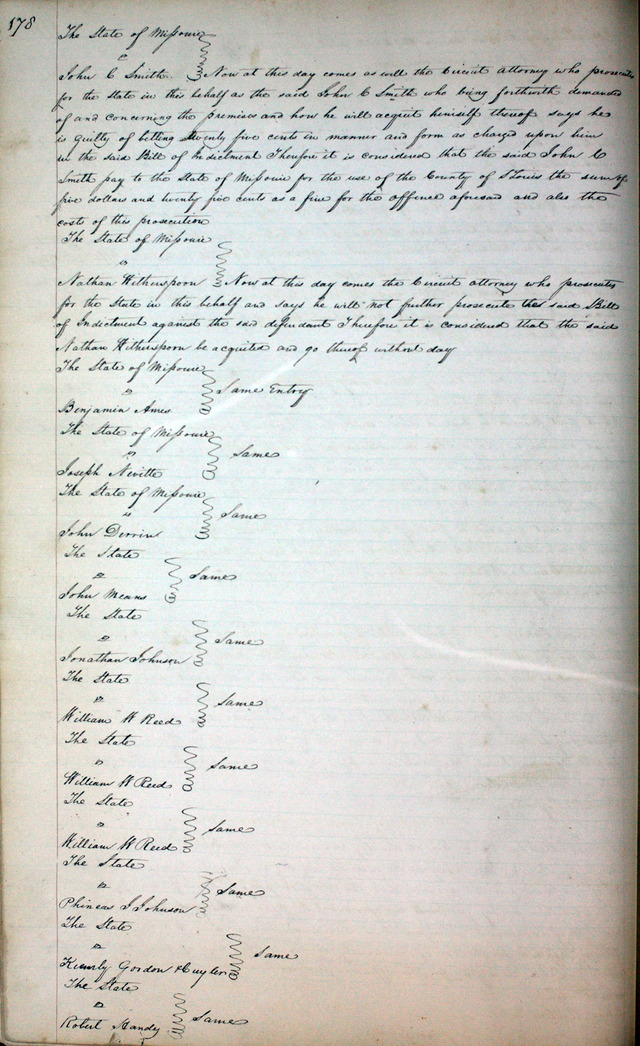 178
The State of Missouri
vs
John C Smith Now at this day comes as well the Circuit Attorney who prosecutes
for the State in this behalf as the said John C Smith who being forthwith demanded
of and concerning the premises and how he will acquit himself thereof says he
is guilty of betting twenty five cents in manner and form as charged upon him
in the said Bill of Indictment Therefore it is considered that the said John C
Smith pay to the State of Missouri for the use of the County of St Louis the sum of
five dollars and twenty five cents as a fine for the offence aforesaid and also the
costs of this prosecution
The State of Missouri
vs
Nathan Witherspoon Now at this day comes the Circuit attorney who prosecutes
for the State in this behalf and says he will not further prosecute the said Bill
of Indictment against the said defendant Therefore it is considered that the said
Nathan Witherspoon be acquited and go thereof without day
The State of Missouri
vs Same Entry
Benjamin Ames
The State of Missouri
vs Same
Joseph Neville
The State of Missouri
vs Same
John Derrin
The State
vs Same
John Means
The State
vs Same
Jonathan Johnson
The State
vs Same
William W Reed
The State
vs Same
William W Reed
The State
vs Same
William W Reed
The State
vs Same
Phineas J Johnson
The State
vs Same
Gordon & Cuyler
The State
vs Same
Robert Handy